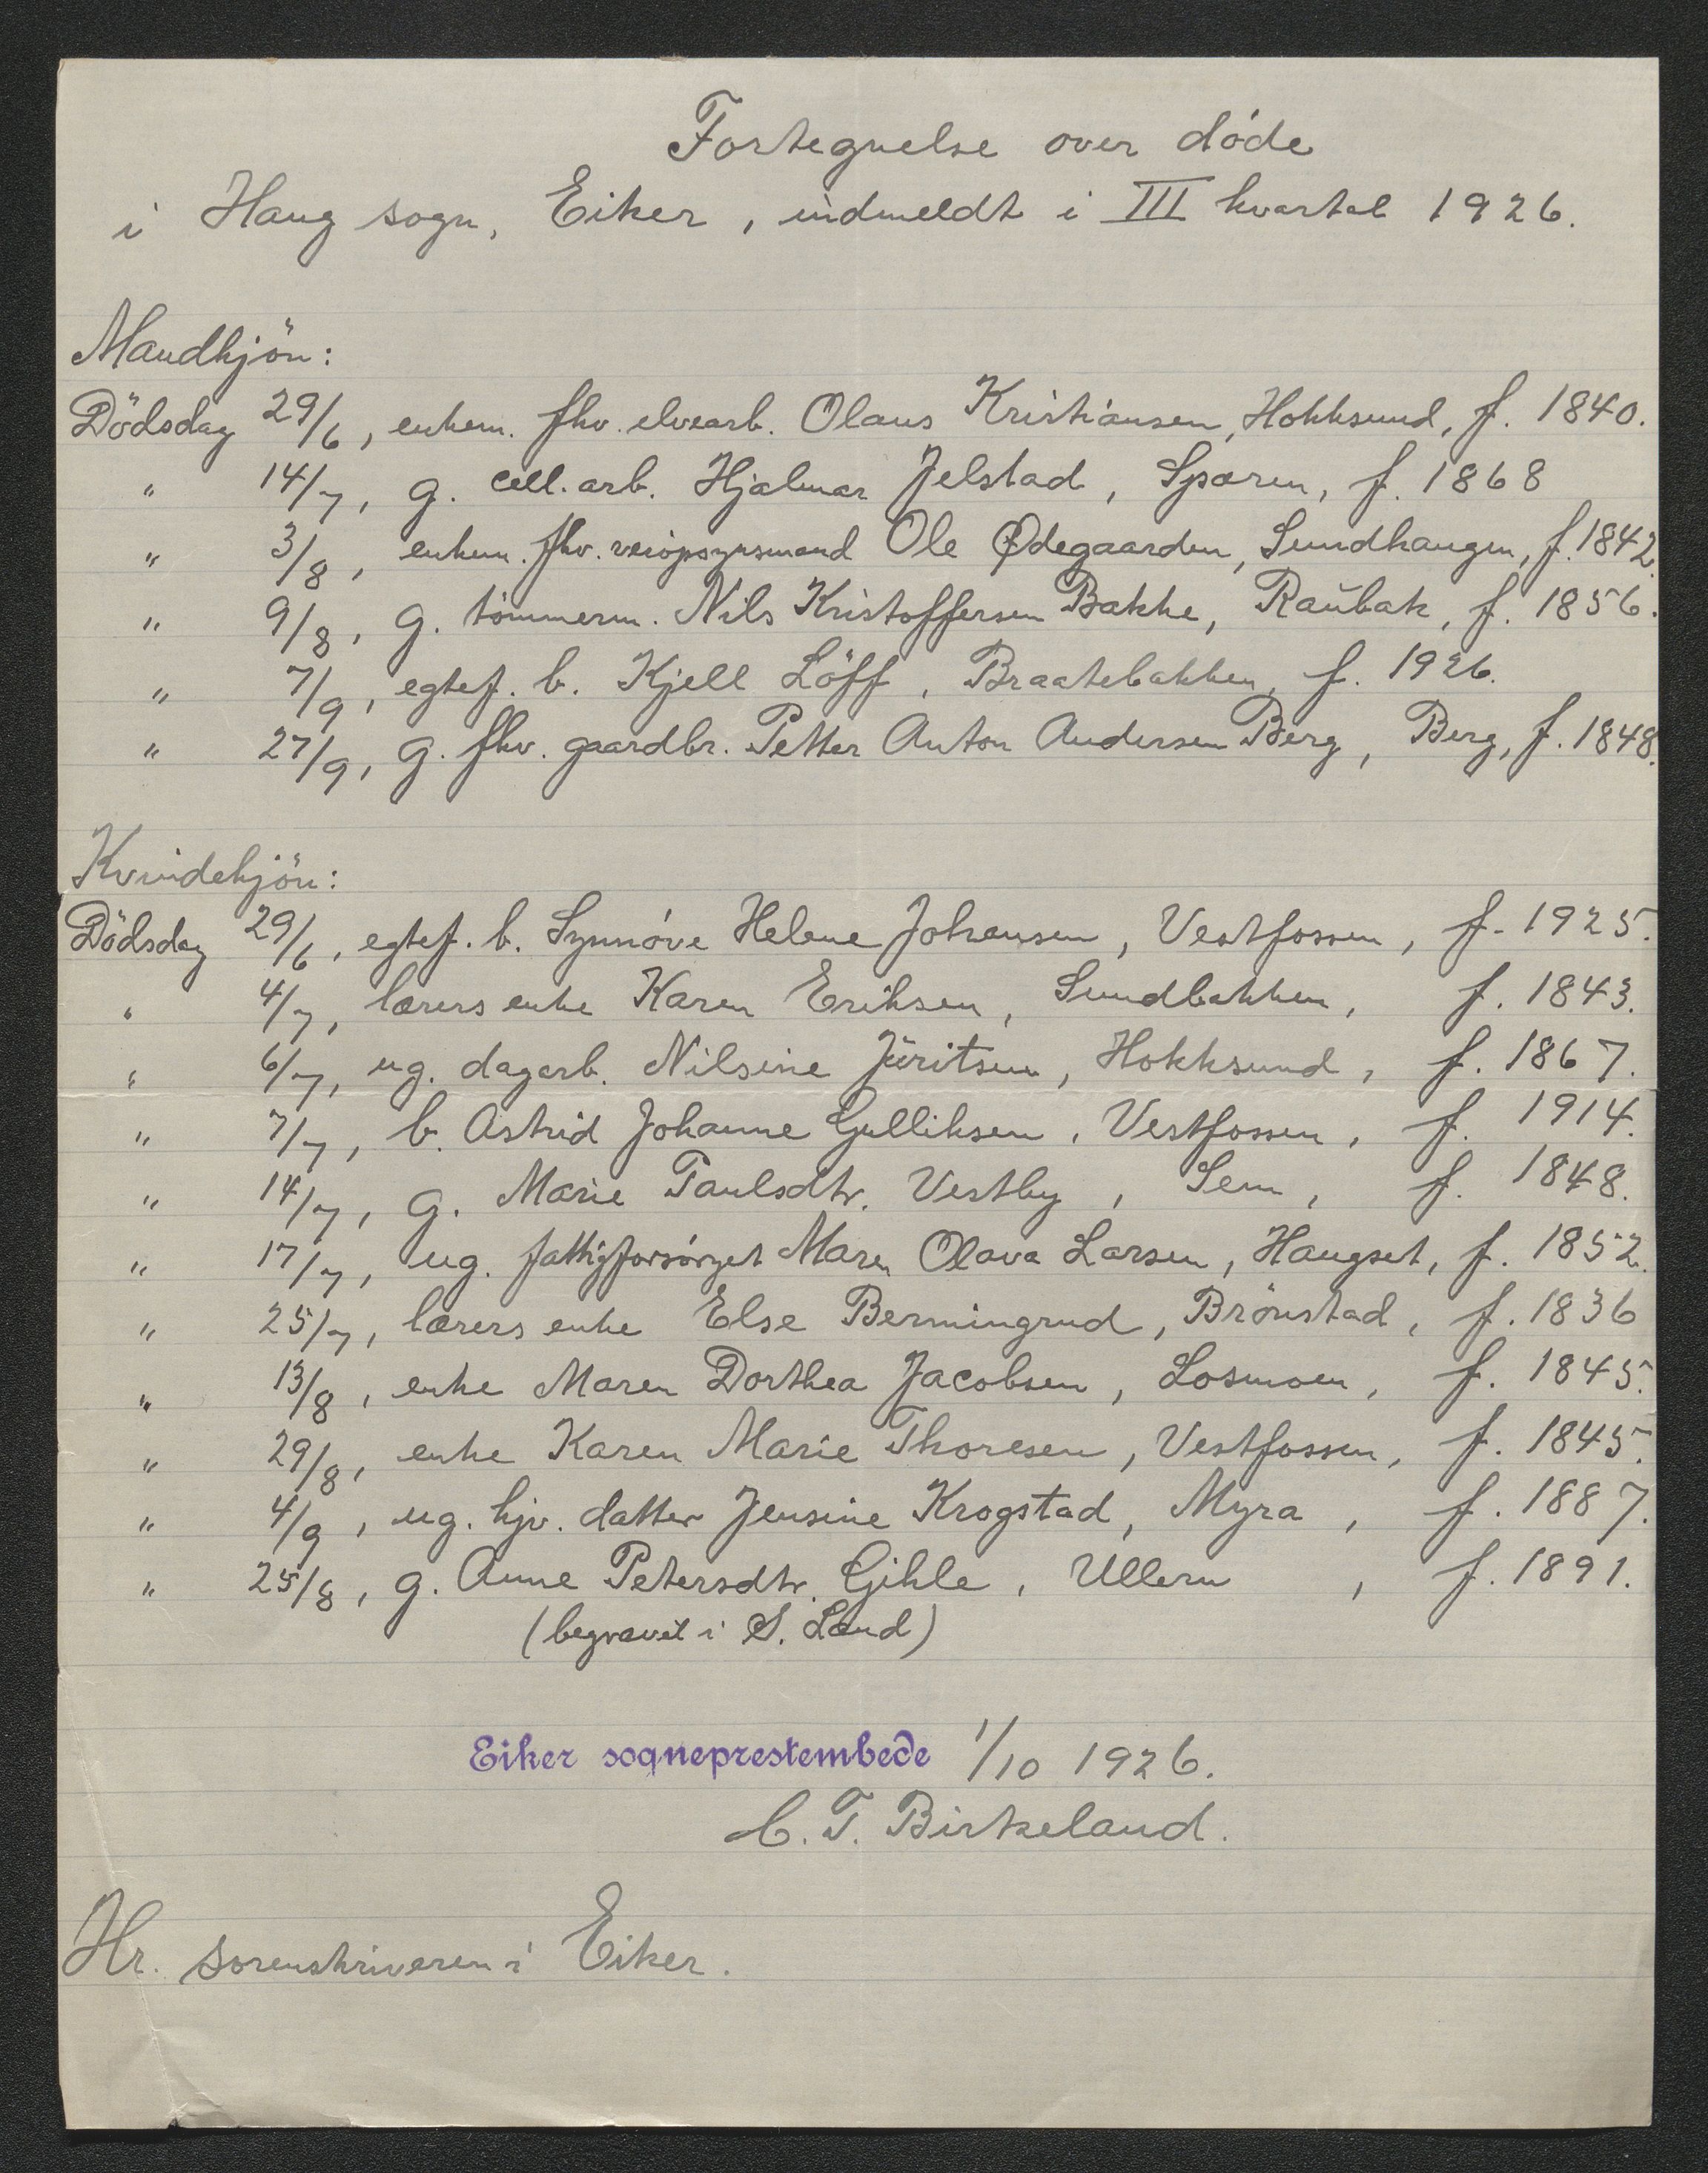 Fortegnelse over døde
i Haug sogn, Eiker, indmeldt i III kvartal 1926.
Mandkjön:
Dödsdag 29/6, enkem. fhv. elvearb. Olaus Kristiansen, Hokksund, f. 1840.
" 14/7, g. cell. arb. Hjalmar Jelstad, Sparen, f. 1868
" 3/8, enkem. fhv. veiopsynsmand Ole Ødegaarden, Sundhaugen, f. 1842.
" 9/8, g. tömmerm. Nils Kristoffersen Bakke, Raubak, f. 1856.
" 7/9, egtef. b. Kjell Löff, Braatebakken, f. 1926.
" 27/9, g. fhv. gaardbr. Petter Anton Andersen Berg, Berg, f. 1848.
Kvindekjön:
Dödsdag 29/6, egtef. b. Synnóve Helene Johansen, Vestfossen, f. 1925.
" 4/7, lærers enke Karen Eriksen, Sundbakken, f. 1843.
" 6/7, ug. dagarb. Nilsine Juritsen, Hokksund, f. 1867.
" 7/7, b. Astrid Johanne Gulliksen, Vestfossen, f. 1914.
" 14/7, g. Marie Paulsdtr. Vestby, Sem, f. 1848.
" 17/7, ug. fattigforsórget Maren Olava Larsen, Haugset, f. 1852.
" 25/7, lærers enke Else Bermingrud, Brónstad, f. 1836
" 13/8, enke Maren Dorthea Jacobsen, Losmoen, f. 1845.
" 29/8, enke Karen Marie Thoresen, Vestfossen, f. 1845.
" 4/9, ug. hjv. datter Jensine Krogstad, Myra, f. 1887.
" 25/8, g. Anne Petersdtr. Gihle, Ullern, f. 1891.
(begravet i S. Land)
Eiker sogneprestembede 1/10 1926.
C. T. Birkeland.
Hr. sorenskriveren i Eiker.